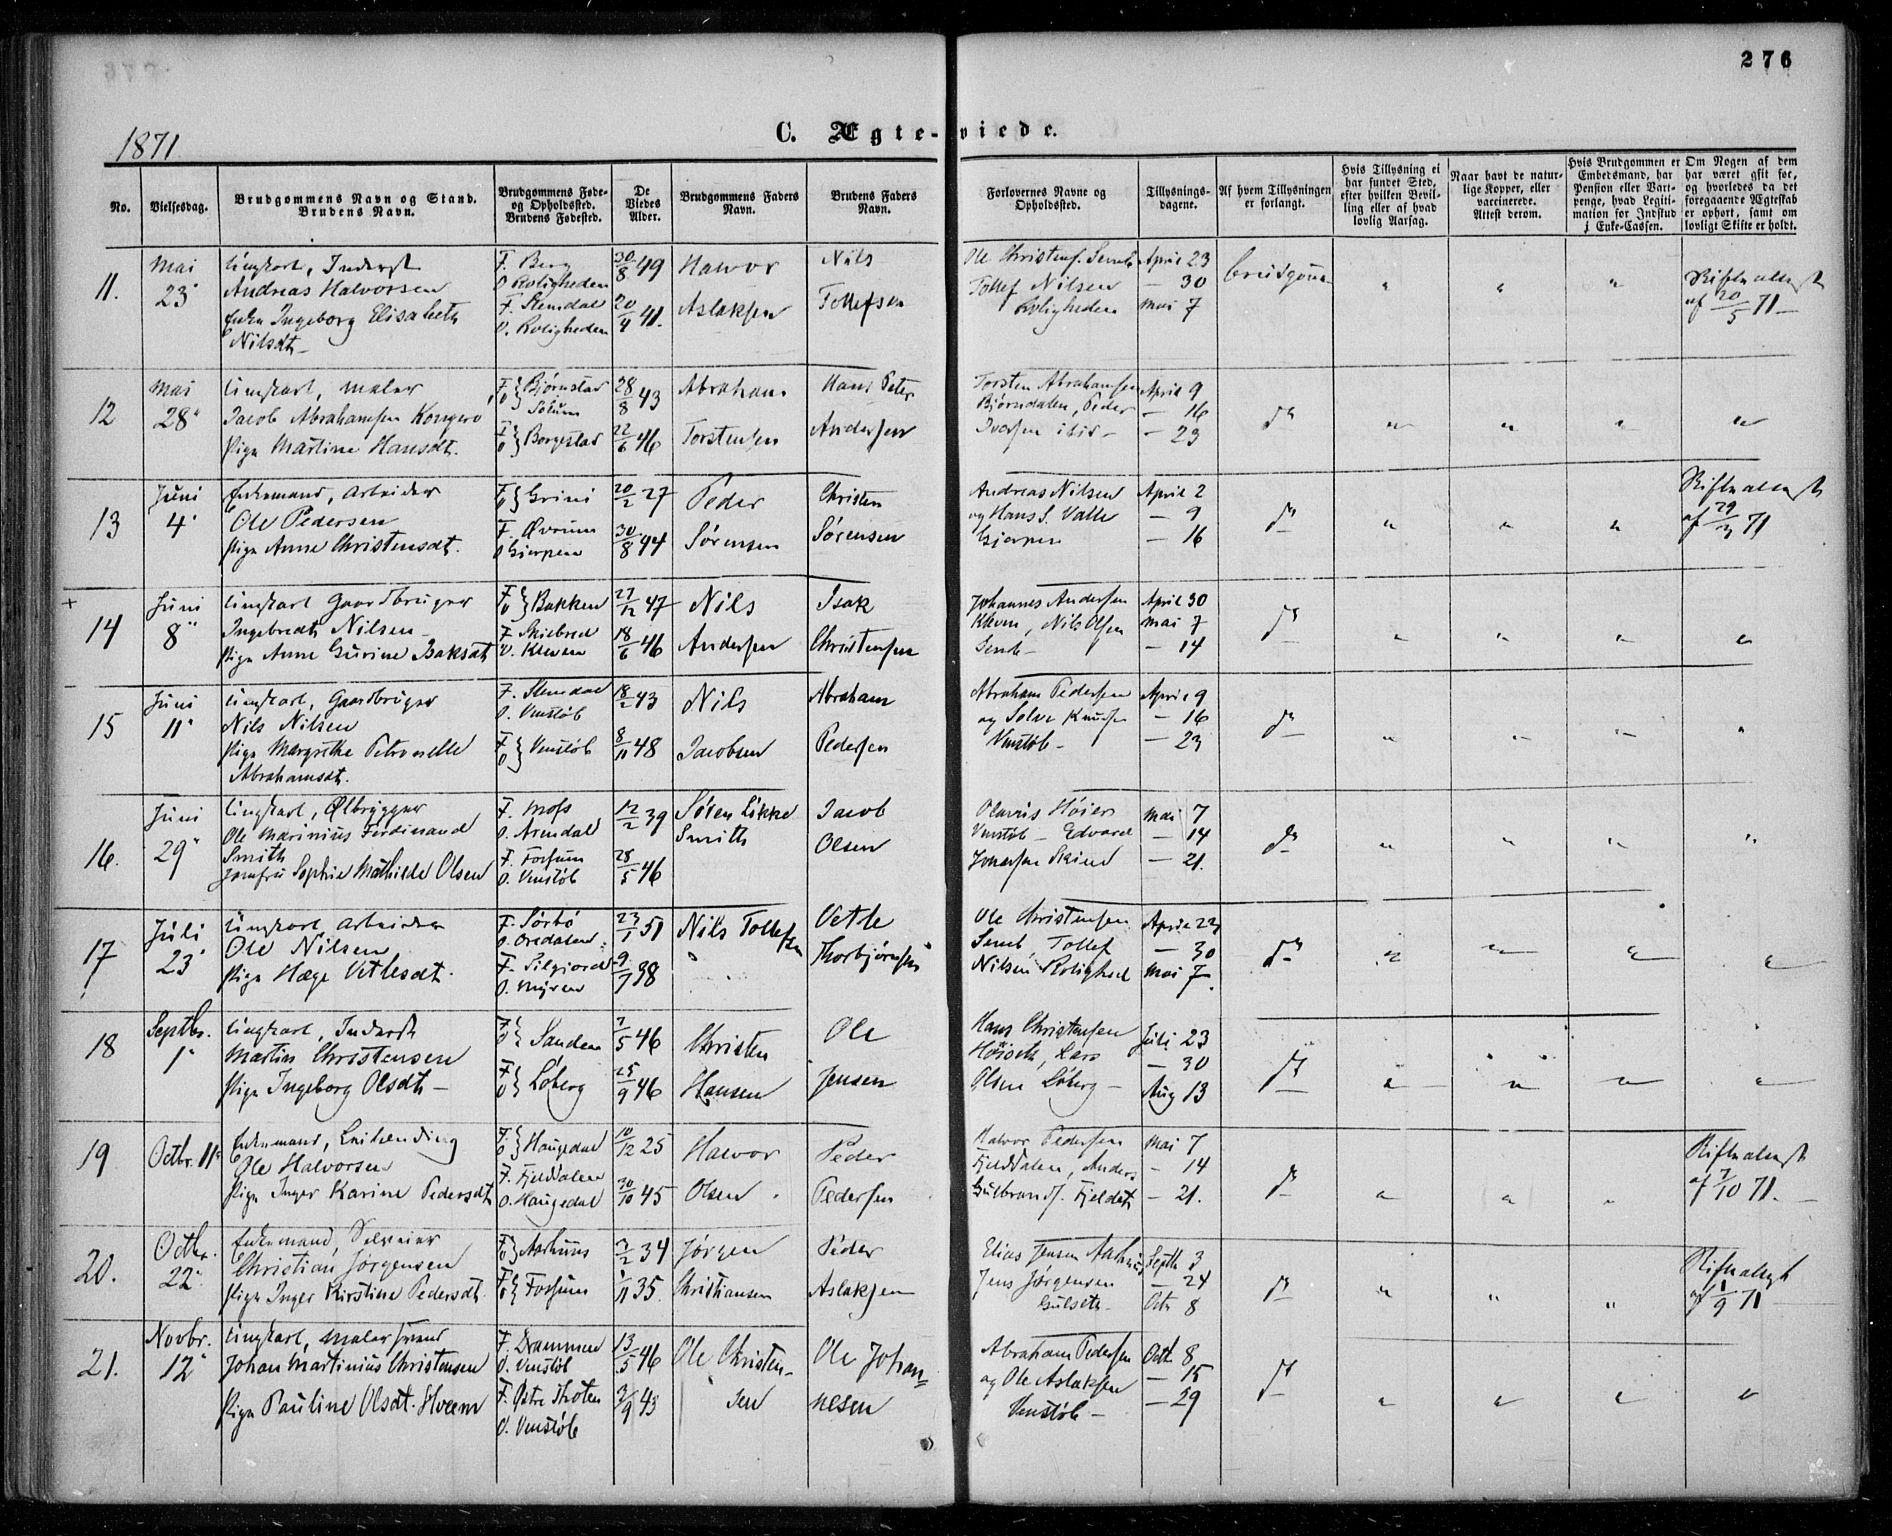 276
1871
C. Ægte-viede.
No.
Vielsesdag.
Brudgommens Navn og Stand.
Brudens Navn.
Brudgommens Føde-
og Opholdssted.
Brudens Fødested.
De
Viedes
Alder.
Brudgommens Faders
Navn.
Brudens Faders
Navn.
Forlovernes Navne og
Opholdssted.
Tillysnings-
dagene.
Af hvem Tillysningen
er forlangt.
Hvis Tillysning ei
har fundet Sted,
efter hvilken Bevil-
ling eller af hvad
lovlig Aarsag.
Naar havt de natur-
lige Kopper, eller
vaccinerede.
Attest derom.
Hvis Brudgommen er
Embedsmand, har
Pension eller Vart-
penge, hvad Legiti-
mation for Indskud
i Enke-Cassen.
Om Nogen af dem
har været gift før,
og hvorledes da det
foregaaende Ægteskab
er ophørt, samt om
lovligt Skifte er holdt.
11.
Mai
23
Ungkarl, Inderst
Andreas Halvorsen
Enke Ingeborg Elisabeth
Nilsdt
F. Berg
O Roligheden
F. Slemdal
O. Roligheden
30/8 49
20/4 41.
Halvor
Aslaksen
Nils
Tollefsen
Ole Christens. Semb
Tollef Nilsen
Roligheden
April 23
— 30
Mai 7
Brudgom
Skifteattest
af 20/5 71
12
Mai
28
Ungkarl, maler
Jacob Abrahamsen Kongerø
Pige Martine Hansdt.
F O } Bjørnstad
Solum
F O } Borgestad
28/8 43
22/6 46
Abraham
Torstensen
Hans Peter
Andersen
Torsten Abrahamsen
Bjørndalen, Peder
Iversen ibid
April 9
— 16
— 23
do
13
Juni
4
Enkemand, Arbeider
Ole Pedersen
Pige Anne Christensdt.
F O } Grini
F. Øvrum
O Gjerpen
20/2 27
30/8 44
Peder
Sørensen
Christen
Sørensen
Andreas Nilsen
og Hans S. Valle
Gjerpen
April 2
— 9
— 16
do
Skifteattest
af 29/3 71
14
Juni
8
Ungkarl Gaardbruger
Ingebredt Nilsen
Pige Anne Gurine Isaksdt
F O } Bakken
F. Skiebred
O. Kleven
27/12 47
18/6 46
Nils
Andersen
Isak
Christensen
Johannes Andersen
Kleven, Nils Olsen
Semb
April 30
Mai 7
— 14
do
15
Juni
11
Ungkarl, Gaardbruger
Nils Nilsen
Pige Margrethe Petronelle
Abrahamsdt.
F. Slemdal
O. Venstøb
F O } Venstøb
18/2 43
8/11 48
Nils
Jacobsen
Abraham
Pedersen
Abraham Pedersen
og Solve Knudsen
Venstøb
April 9
— 16
— 23
do
16.
Juni
29
Ungkarl, Ølbrygger
Ole Marinius Ferdinand
Smith
Jomfru Sophie Mathilde Olsen
F. Moss
O. Arendal
F. Fossum
O. Venstøb
12/2 39
28/5 46
Søren Likke
Smith
Jacob
Olsen
Olavus Høier
Venstøb Edvard
Johnsen Skien
Mai 7
— 14
— 21.
do
17
Juli
23
Ungkarl Arbeider
Ole Nilsen
Pige Hæge Vetlesdt.
F. Sørbø
O. Oredalen
F. Silgjord
O. Myren
23/1 51
9/7 38
Nils Tollefsen
Vetle
Thorbjørnsen
Ole Christensen
Semb Tollef
Nilsen Rolighed
April 23
— 30
Mai 7
do
18
Septbr.
1
Ungkarl, Inderst
Martin Christensen
Pige Ingeborg Olsdt
F O } Sanden
F O } Løberg
7/5 46
25/9 46
Christen
Hansen
Ole
Jensen
Hans Christensen
Høiseth, Lars
Olsen Løberg
Juli 23
— 30
Aug 13
do
19
Octbr. 11
Enkemand, Leilending
Ole Halvorsen
Pige Inger Karine Pedersdt
F O } Haugedal
F. Fjelddalen
O. Haugedal
10/12 25
30/10 45
Halvor
Olsen
Peder
Pedersen
Halvor Pedersen
Fjelddalen, Anders
Gulbrands. Fjeldet
Mai 7
— 14
— 21.
do
Skifteattest
af 7/10 71.
20.
Octbr.
22
Enkemand, Selveier
Christian Jørgensen
Pige Inger Kirstine Pedersdt.
F O } Aarhuus
F O } Fossum
3/2 34
1/11 35
Jørgen
Christiansen
Peder
Aslaksen
Elias Jensen Aarhuus
Jens Jørgensen
Gulseth
Septb 3
— 24
Octr 8
do
Skifteattest
af 1/9 71
21.
Novbr.
12
Ungkarl, Malersvend
Johan Martinius Christensen
Pige Pauline Olsdt. Hveem
F. Drammen
O. Venstøb
F. Østre Thoten
O. Venstøb
13/5 46
3/9 43
Ole Christen-
sen
Ole Johan-
nesen
Abraham Pedersen
og Ole Aslaksen
Venstøb
Octb 8
— 15
— 29
do